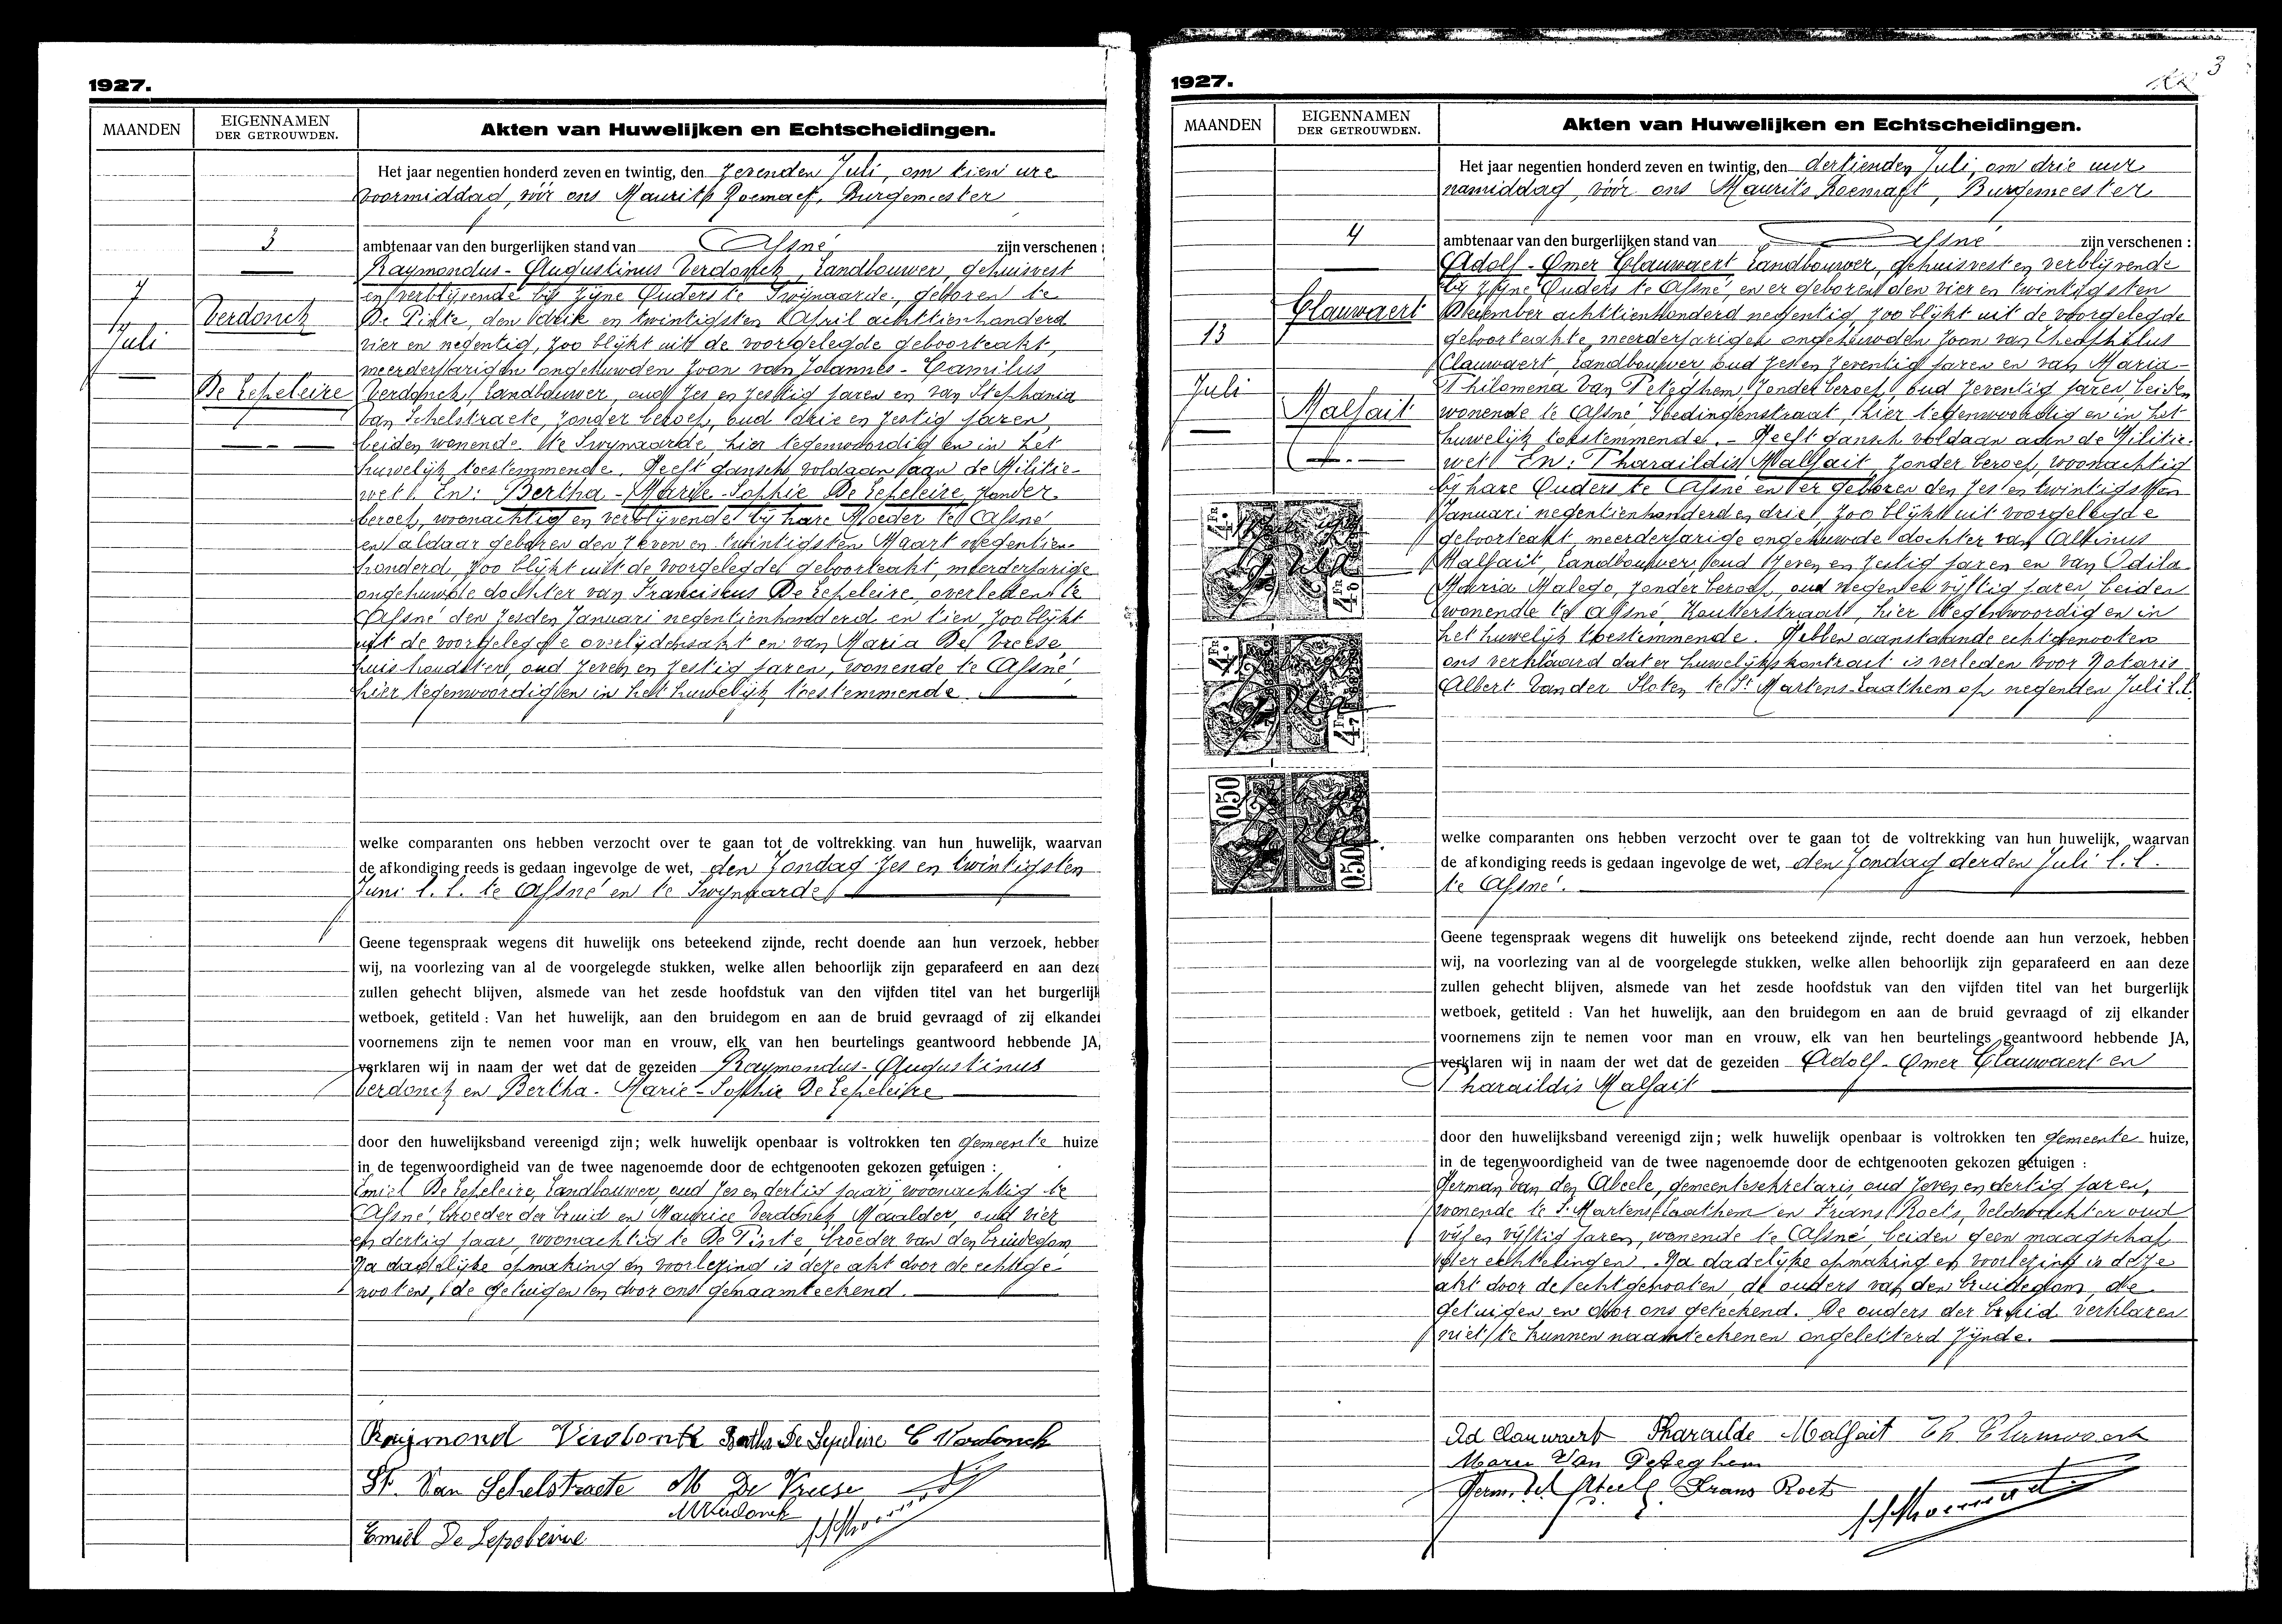 1927.
MAANDEN
EIGENNAMEN
DER GETROUWDEN.
Akten van Huwelijken en Echtscheidingen.
Het jaar negentien honderd zeven en twintig, den zevenden Juli, om tien ure
voormiddag, vóór ons Maurits Roemaet, Burgemeester
3
ambtenaar van den burgerlijken stand van Afsné zijn verschenen :
7
Juli
Verdonck
De Lepeleire
Raymondus-Augustinus Verdonck, Landbouwer, gehuisvest
en verblijvende bij zijne Ouders te Swijnaarde, geboren te
De Pinte, den drie en twintigsten April achttienhonderd
vier en negentig, zoo blijkt uit de voorgelegde geboorteakt,
meerderjarigen ongehuwden zoon van Johannes-Camilus
Verdonck, Landbouwer, oud zes en zestig jaren en van Stephania
Van Schelstraete, zonder beroep, oud drie en zestig jaren,
beiden wonende te Swynaarde, hier tegenwoordig en in het
huwelijk toestemmende. Heeft gansch voldaan aan de Militie-
wet. En: Bertha-Marie-Sophie De Lepeleire, zonder
beroep, woonachtig en verblijvende bij hare Moeder te Afsné
en aldaar geboren den zeven en twintigsten Maart negentien-
honderd, zoo blijkt uit de voorgelegde geboorteakt, meerderjarige
ongehuwde dochter van Franciscus De Lepeleire, overleden te
Afsné den zesden Januari negentienhonderd en tien, zoo blijkt
uit de voorgelegde overlijdensakt en van Maria De Vreese,
huishoudster, oud zeven en zestig jaren, wonende te Afsné,
hier tegenwoordig en in het huwelijk toestemmende.
welke comparanten ons hebben verzocht over te gaan tot de voltrekking van hun huwelijk, waarvan
de afkondiging reeds is gedaan ingevolge de wet, den Zondag zes en twintigsten
Juni l.l. te Afsné en te Swynaarde
Geene tegenspraak wegens dit huwelijk ons beteekend zijnde, recht doende aan hun verzoek, hebben
wij, na voorlezing van al de voorgelegde stukken, welke allen behoorlijk zijn geparafeerd en aan deze
zullen gehecht blijven, alsmede van het zesde hoofdstuk van den vijfden titel van het burgerlijk
wetboek, getiteld : Van het huwelijk, aan den bruidegom en aan de bruid gevraagd of zij elkander
voornemens zijn te nemen voor man en vrouw, elk van hen beurtelings geantwoord hebbende JA,
verklaren wij in naam der wet dat de gezeiden Raymondus-Augustinus
Verdonck en Bertha-Marie-Sophie De Lepeleire
door den huwelijksband vereenigd zijn; welk huwelijk openbaar is voltrokken ten gemeente huize
in de tegenwoordigheid van de twee nagenoemde door de echtgenooten gekozen getuigen :
Emiel De Lepeleire, Landbouwer, oud zes en dertig jaar, woonachtig te
Afsné, broeder der bruid en Maurice Verdonck, Maalder, oud vier
en dertig jaar, woonachtig te De Pinte, broeder van den bruidegom
Na dadelijke opmaking en voorlezing is deze akt door de echtge-
nooten, de getuigen en door ons genaamteekend.
Raijmond Verdonck Bertha De Lepeleire C Verdonck
St. Van Schelstraete M De Vreese
MVerdonck
Emiel De Lepeleire
1927.
3
MAANDEN
EIGENNAMEN
DER GETROUWDEN.
Akten van Huwelijken en Echtscheidingen.
Het jaar negentien honderd zeven en twintig, den dertienden Juli, om drie uur
namiddag, vóór ons Maurits Roemaet, Burgemeester
4
ambtenaar van den burgerlijken stand van Afsné zijn verschenen :
13
Juli
Clauwaert
Malfait
Adolf-Omer Clauwaert Landbouwer, gehuisvest en verblijvende
bij zijne Ouders te Afsné, en er geboren den vier en twintigsten
December achttienhonderd negentig, zoo blijkt uit de voorgelegde
geboorteakte, meerderjarigen ongehuwden zoon van Theophilus
Clauwaert, Landbouwer, oud zes en zeventig jaren en van Maria-
Philomena Van Peteghem, zonder beroep, oud zeventig jaren, beiden
wonende te Afsné, hier tegenwoordig en in het
huwelijk toestemmende. - Heeft gansch voldaan aan de Militie-
wet. En: Tharaildis Malfait, zonder beroep, woonachtig
bij hare Ouders te Afsné en er geboren den zes en twintigsten
Januari negentienhonderd en drie, zoo blijkt uit voorgelegde
geboorteakt, meerderjarige ongehuwde dochter van Alfinus
Malfait, Landbouwer, oud zeven en zestig jaren en van Odila
Maria Malego, zonder beroep, oud negen en vijftig jaren, beiden
wonende te Afsné, Kouterstraat, hier tegenwoordig en in
het huwelijk toestemmende. Hebben aanstaande echtgenooten
ons verklaard dat er huwelijkskontrakt is verleden voor Notaris
Albert Van der Sloten te St Martens-Laathem op negenden Juli l.l.
4 Fr
4 Fr
4 Fr
4 Fr
050
050
welke comparanten ons hebben verzocht over te gaan tot de voltrekking van hun huwelijk, waarvan
de afkondiging reeds is gedaan ingevolge de wet, den Zondag derden Juli l.l.
te Afsné.
Geene tegenspraak wegens dit huwelijk ons beteekend zijnde, recht doende aan hun verzoek, hebben
wij, na voorlezing van al de voorgelegde stukken, welke allen behoorlijk zijn geparafeerd en aan deze
zullen gehecht blijven, alsmede van het zesde hoofdstuk van den vijfden titel van het burgerlijk
wetboek, getiteld : Van het huwelijk, aan den bruidegom en aan de bruid gevraagd of zij elkander
voornemens zijn te nemen voor man en vrouw, elk van hen beurtelings geantwoord hebbende JA,
verklaren wij in naam der wet dat de gezeiden Adolf-Omer Clauwaert en
Tharaildis Malfait
door den huwelijksband vereenigd zijn; welk huwelijk openbaar is voltrokken ten gemeente huize,
in de tegenwoordigheid van de twee nagenoemde door de echtgenooten gekozen getuigen :
Herman Van den Abeele, gemeentesekretaris, oud zeven en dertig jaren,
wonende te St Martens Laathem en Frans Roets, Veldwachter oud
vijf en vijftig jaren, wonende te Afsné, beiden geen maagschap
der echtelingen. Na dadelijke opmaking en voorlezing is deze
akt door de echtgenooten, de ouders van den bruidegom, de
getuigen en door ons geteekend. De ouders der bruid verklaren
niet te kunnen naamteekenen ongeletterd zijnde.
Ad Clauwaert Tharailde Malfait Th. Clauwaert
Marie Van Peteghem
Herm. Vd Abeele Frans Roets